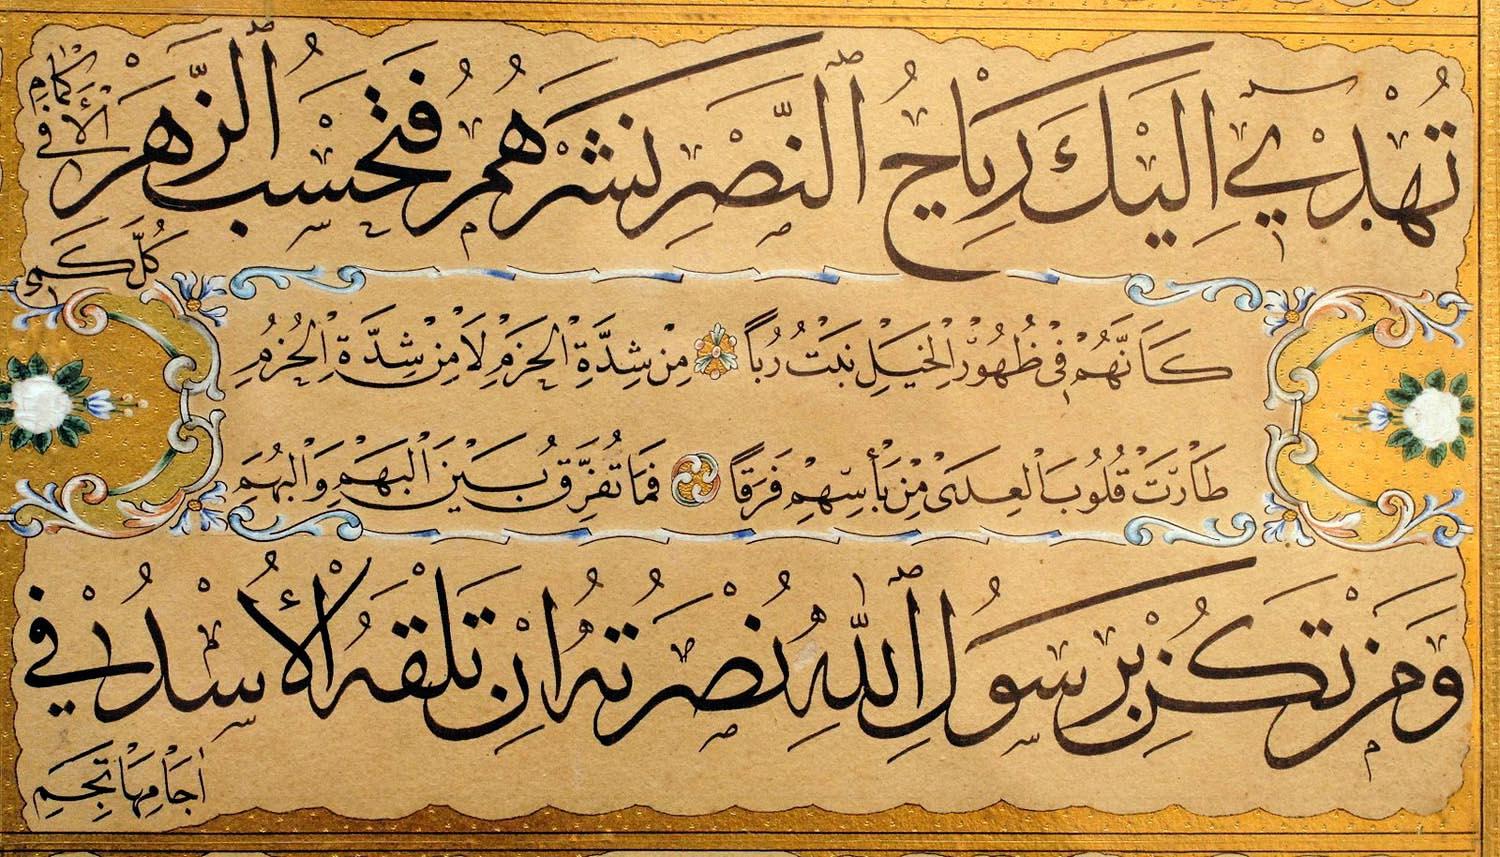 تُهْدِي اِلَيْكَ رِيَاحُ النَّصْرِ نَشْرَهُمُ فَتَحْسَبُ الزَّهْرَ فِي الْاَكْمَامِ
كُلَّ كَمِي
كَاَنَّهُمْ فِي ظُهُورِ الْخَيْلِ نَبْتُ رُبًا مِنْ شِدَّةِ الْحَزْمِ لَا مِنْ شِدَّةِ الْحُزُمِ
طَارَتْ قُلُوبُ الْعِدَى مِنْ بَأْسِهِمْ فَرَقًا فَمَا تُفَرِّقُ بَيْنَ الْبَهْمِ وَالْبُهَمِ
وَمَنْ تَكُنْ بِرَسُولِ اللّٰهِ نُصْرَتُهُ اِنْ تَلْقَهُ الْاُسْدُ فِي
اٰجَامِهَا تَجِمِ